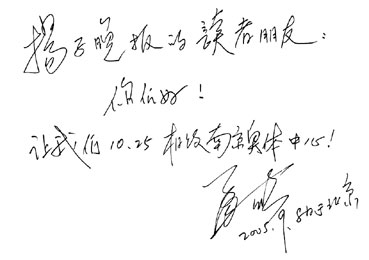 揚子晚报的讀者朋友：
你们好！
让我们10.25相约南京奥体中心！
2005.9.8日于北京